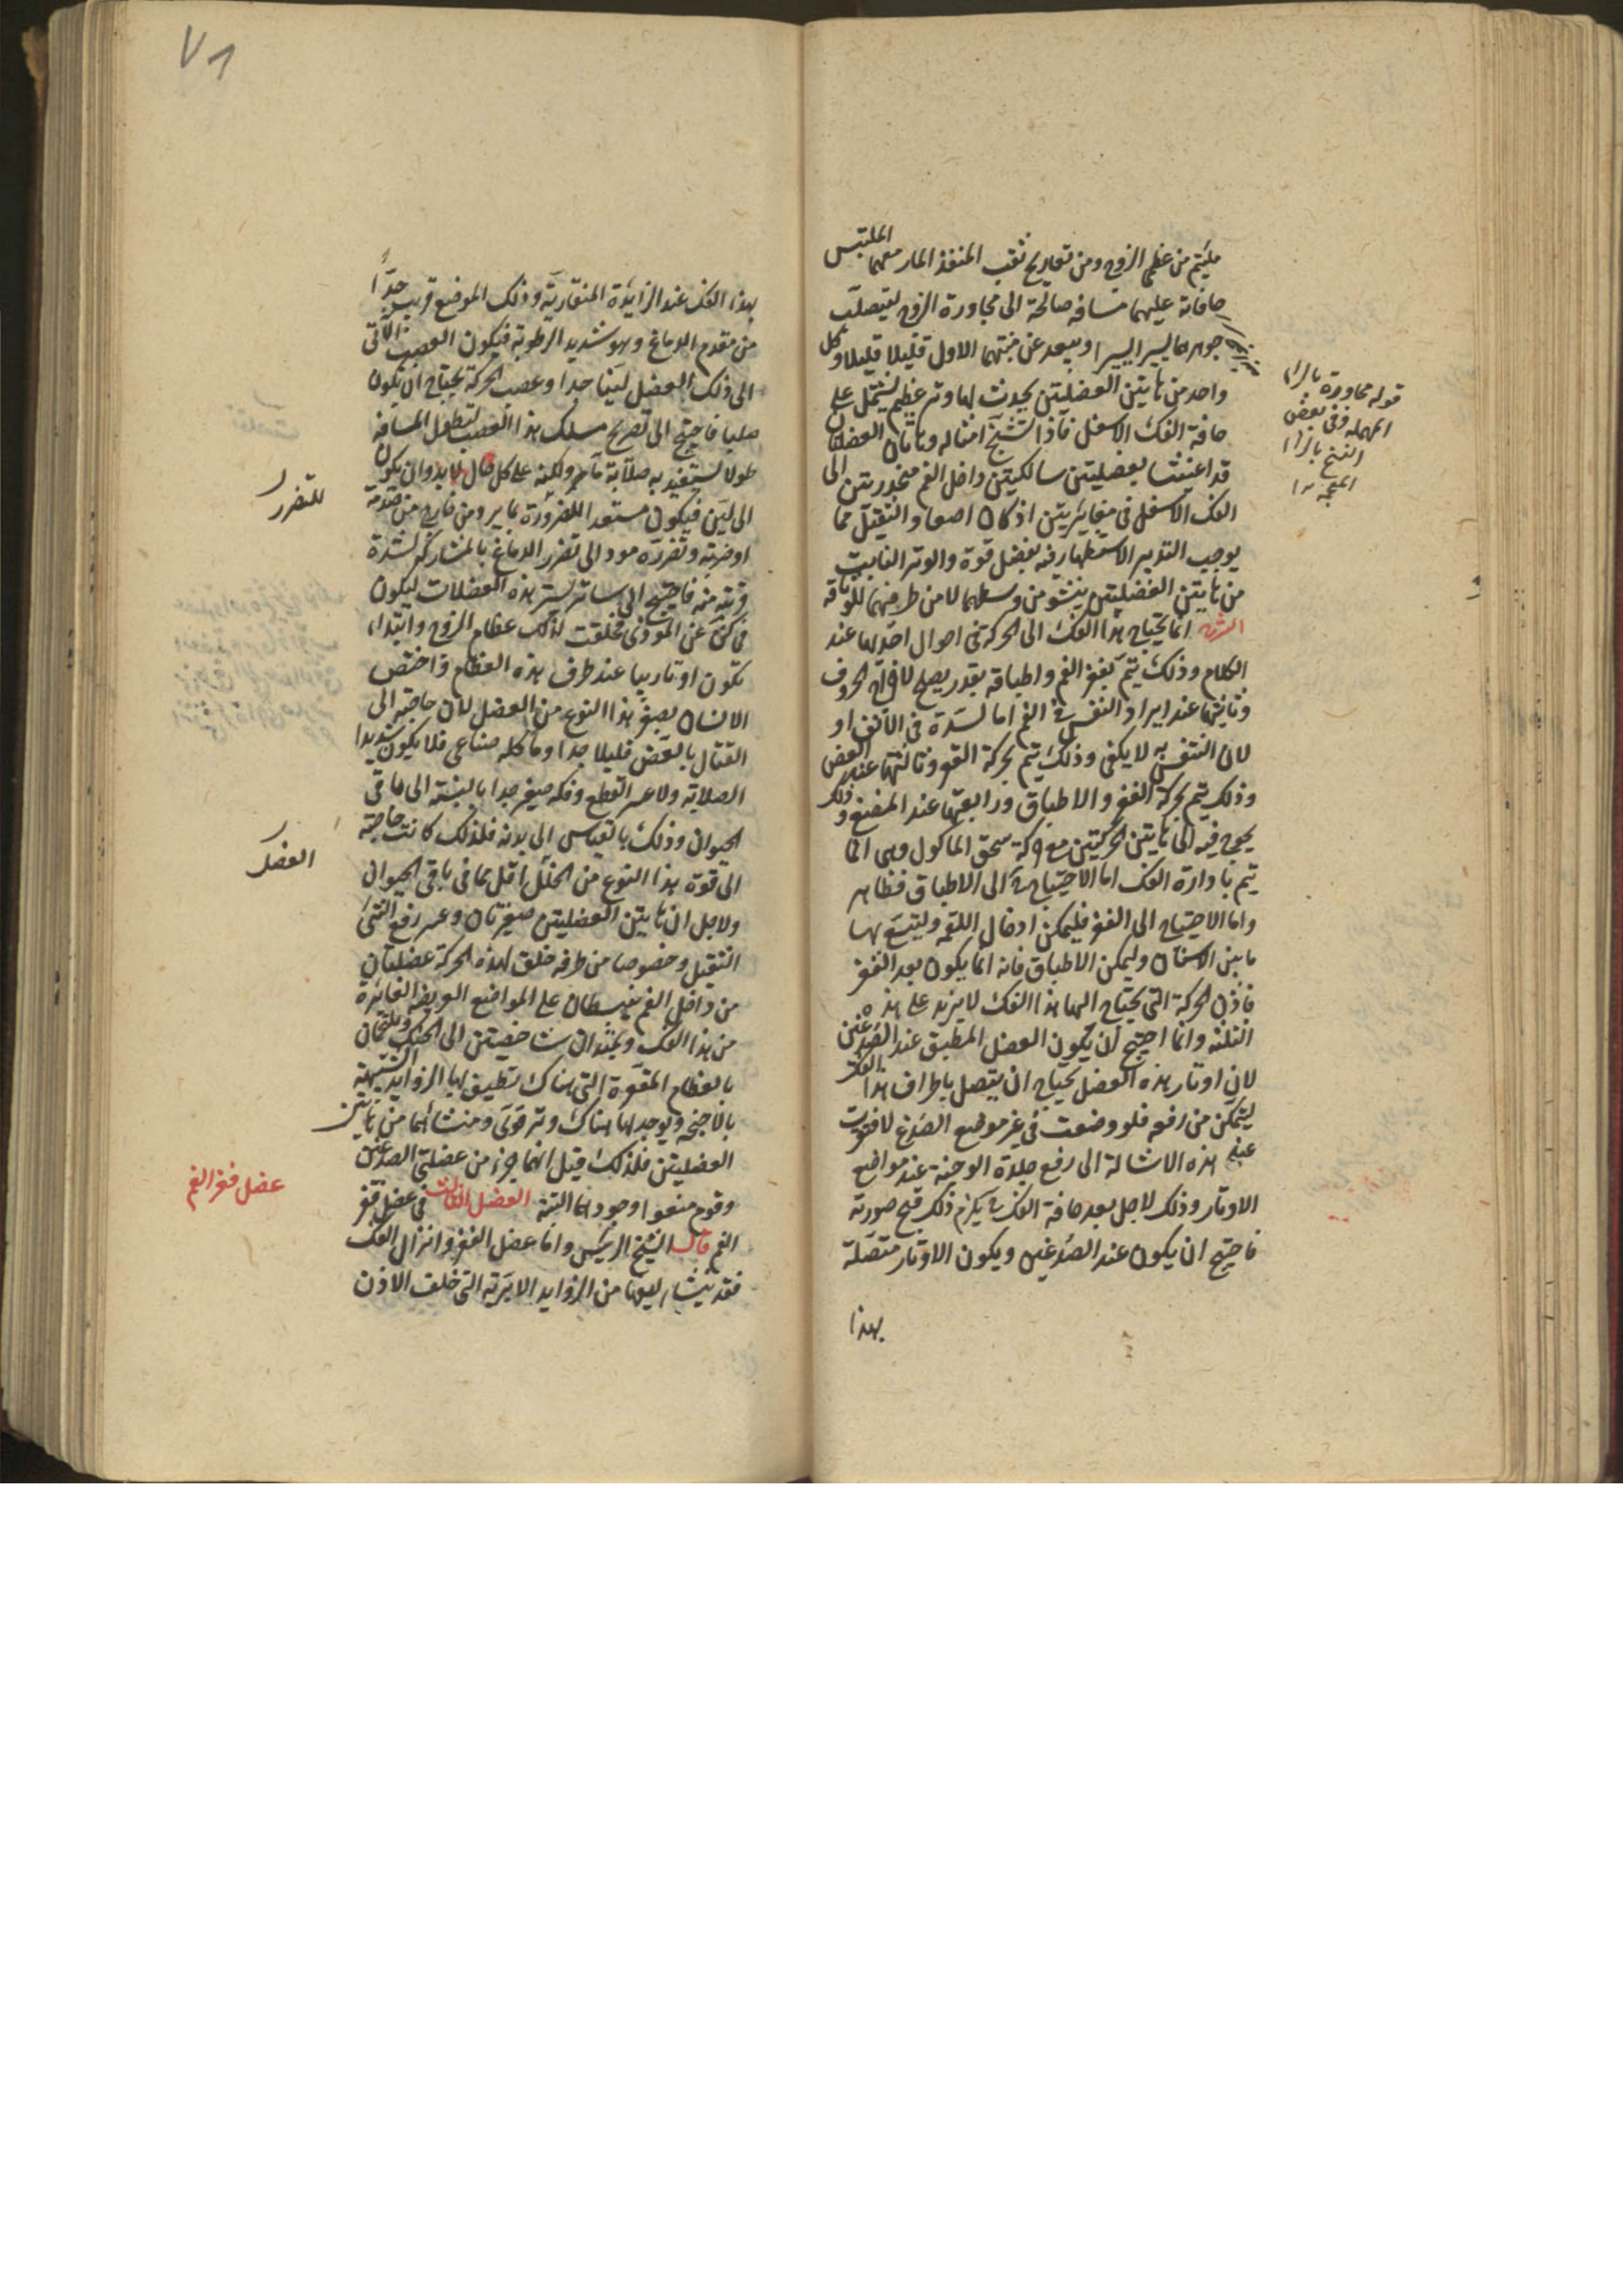 ملتئم من عظمى الزوج ومن تعاريج ثقب المنفذ المار معهما الملتبس
حافاته عليهما مسافة صالحة الى مجاورة الزوج ليتصلب
جوهرهما يسيرا يسيرا ويبعد عن منبتهما الاول قليلا قليلا وكل
واحد من هاتين العضلتين يحدث لها وتر عظيم يشتمل على
حافة الفك الاسفل فاذا تشنج اشاله وهاتان العضلتان
قد اعينتا بعضلتين سالكتين داخل الفم منحدرتين الى
الفك الاسفل في مغارتين اذ كان اصعاد الثقيل مما
يوجب التدبير الاستظهار فيه بفضل قوة والوتر النابت
من هاتين العضلتين ينشو من وسطهما لا من طرفيهما للوثاقة
الشرح انما يحتاج هذا الفك الى الحركة في احوال احدها عند
الكلام وذلك يتم بفغر الفم واطباقه بقدر يصلح لاخراج الحروف
وثانيتها عند ايراد النفس في الفم اما لسدة في الانف او
لان التنفس به لا يكفي وذلك يتم بحركة الفغر وثالثتها عند العض
وذلك يتم بحركة الفغر والاطباق ورابعتها عند المضغ وذلك
يحوج فيه الى هاتين الحركتين مع حركة سحق الماكول وهي انما
يتم بادارة الفك اما الاحتياج الى الاطباق فظاهر
واما الاحتياج الى الفغر فليمكن ادخال اللقمة وليتسع بها
ما بين الاسنان وليمكن الاطباق فانه انما يكون بعد الفغر
فاذن الحركة التي يحتاج اليها هذا الفك لا يزيد على هذه
الثلثة وانما احتيج ان يكون العضل المطبق عند الصدغين
لان اوتار هذه العضل يحتاج ان يتصل باطراف هذا الفك
ليتمكن من رفعه فلو وضعت في غير موضع الصدغ لافتقرت
عند هذه الاشالة الى رفع جلدة الوجنة عند مواضع
الاوتار وذلك لاجل بعد حافة الفك ويلزم ذلك قبح صورته
فاحتيج ان يكون عند الصدغين ويكون الاوتار متصلة
بهذا
قوله مجاورة بالراء
المهملة وفي بعض
النسخ بالزاء
المعجمة
٧١
بهذا الفك عند الزايدة المنقارية وذلك الموضع قريب جدا
من مقدم الدماغ وهو شديد الرطوبة فيكون العصب الآتي
الى ذلك العضل لينا جدا وعصب الحركة يحتاج ان يكون
صلبا فاحتيج الى تعريج مسلك هذا العصب لتطول المسافة
طولا يستفيد به صلابة ما ولكنه على كل حال لابد وان يكون
الى لين فيكون مستعدا للضرورة بما يرد من خارج من صدمة
او ضربة وتضرره مود الى تضرر الدماغ بالمشاركة لشدة
قربه منه فاحتيج الى ساتر يستر هذه العضلات ليكون
في كن عن الموذي فخلقت لذلك عظام الزوج وابتداء
تكون اوتارها عند طرف هذه العظام واختص
الانسان بصغر هذا النوع من العضل لان حاجته الى
القتال بالعض قليلا جدا وماكله صناعي فلا يكون شديدا
الصلابة ولا عسر القطع وفكه صغير جدا بالنسبة الى باقي
الحيوان وذلك بالقياس الى بدنه فلذلك كانت حاجته
الى قوة هذا النوع من الخلل اقل مما في باقي الحيوان
ولاجل ان هاتين العضلتين صغيرتان وعسر رفع الشئ
الثقيل وخصوصا من طرفه خلق لهذه الحركة عضلتان
من داخل الفم ينبسطان على المواضع العريضة الغايرة
من هذا الفك ويمتدان شاخصتين الى الحنك ويلتحمان
بالعظام المقعرة التي هناك تطيف بها الزوايد الشبيهة
بالاجنحة ويوجد لها هناك وتر قوي ومنشائها من هاتين
العضلتين فلذلك قيل انهما جزء من عضلتي الصدغين
وقوم منعوا وجودهما البتة العضل الثالث في عضل فغر
الفم قال الشيخ الرئيس واما عضل الفغر وانزال الفك
فقد ينشا ليفها من الزوايد الابرية التي خلف الاذن
للتضرر
العضل
عضل فغر الفم